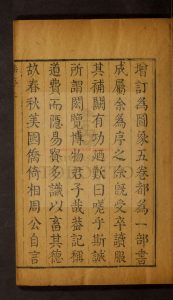 增訂為圖象五卷都為一部書
成屬余為序之余旣受卒讀服
其補闕有功迺歎曰嗟乎斯誠
所謂閎覽博物君子哉葢記稱
道費而隱易賚多識以畜其德
故春秋美國僑倚相周公自言